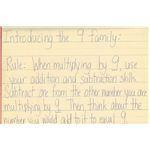 Introducing the 9 family:
Rule: When multiplying by 9, use
your addition and subtraction skills.
Subtract one from the other number you are
multiplying by 9. Then, think about the
number you would add to it to equal 9.